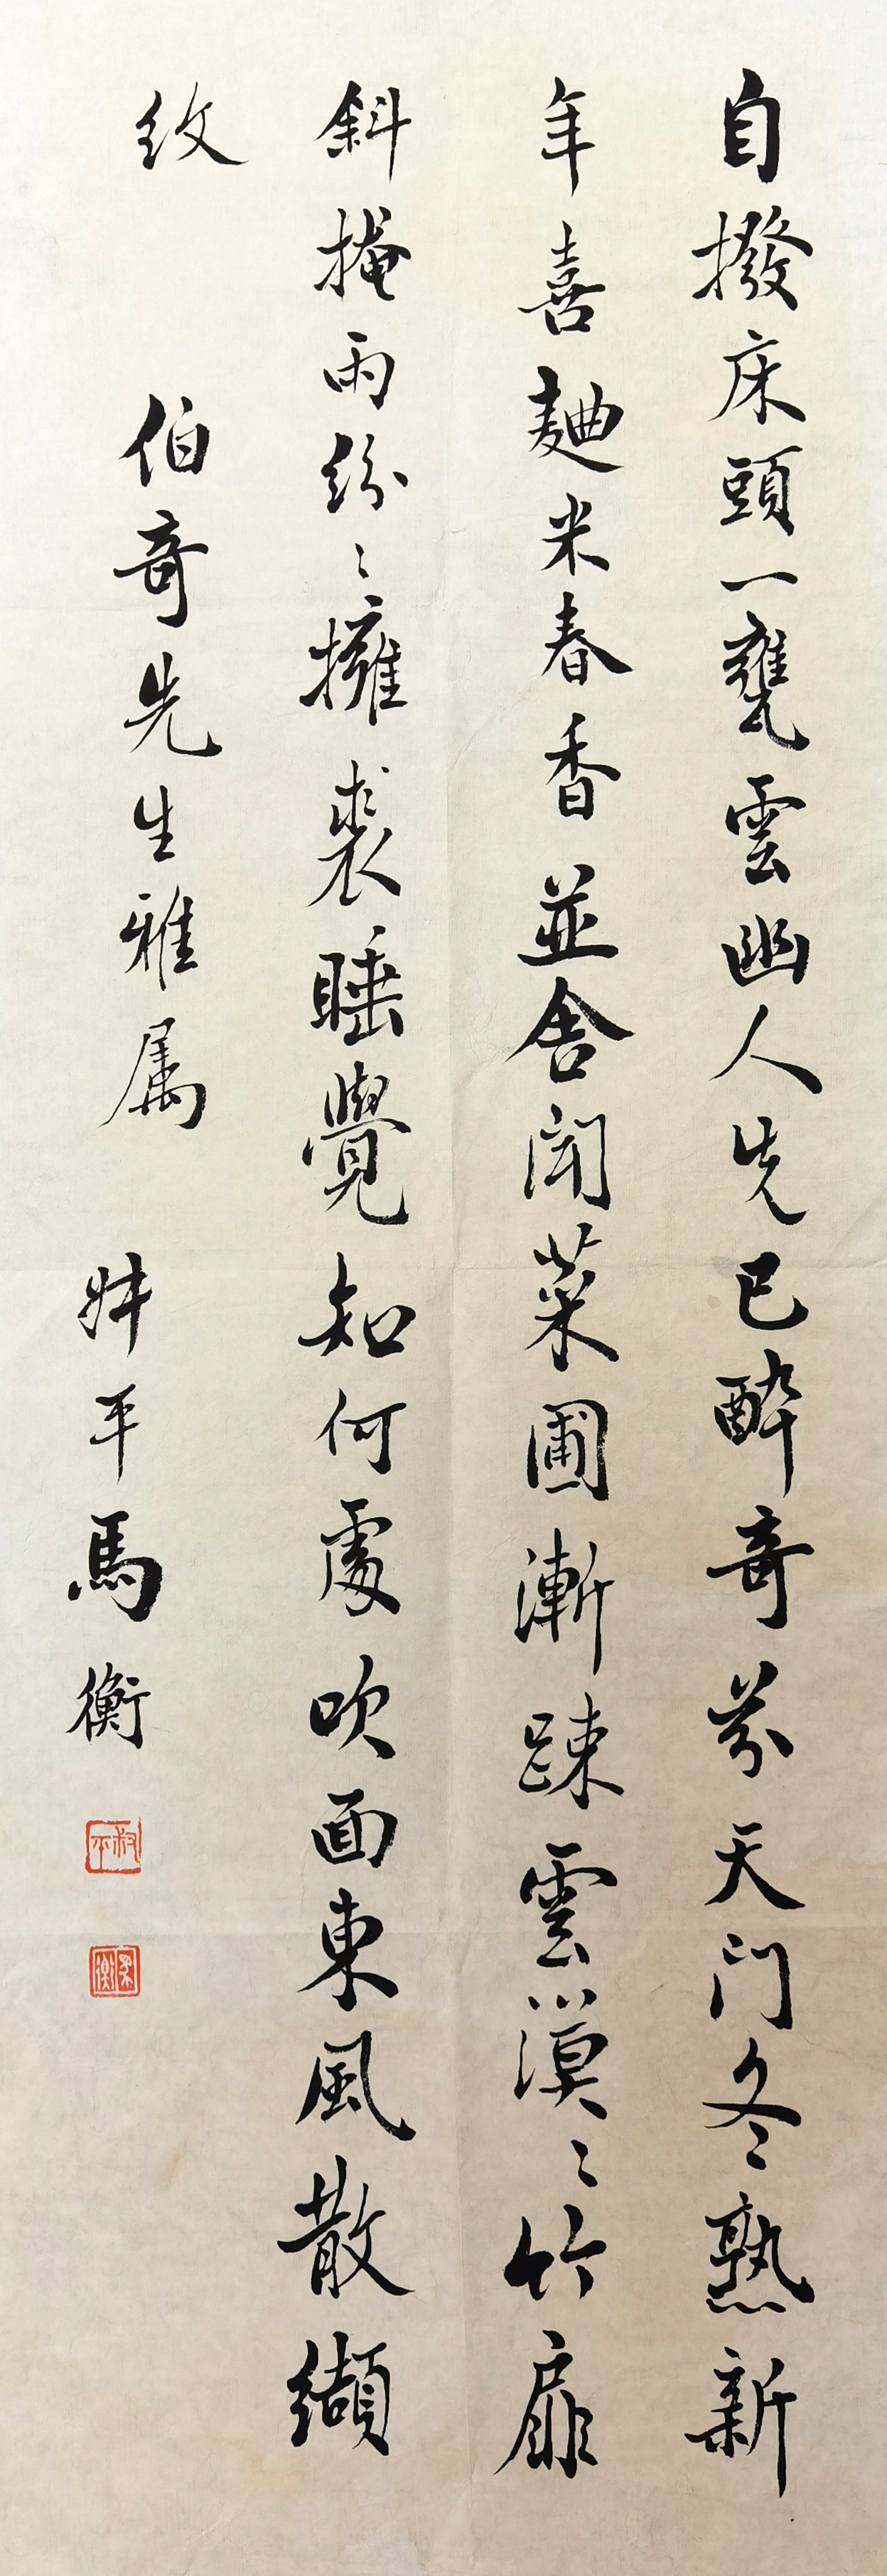 自撥床頭一甕雲幽人先已醉奇芬天門冬熟新
年喜麯米春香並舍聞菜圃漸踈雲漠〻竹扉
斜掩雨紛〻擁裘睡覺知何處吹面東風散纈
紋
伯奇先生雅属
叔平馬衡
叔平
馬衡